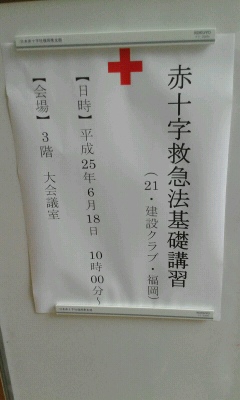 赤十字救急法基礎講習
（21・建設クラブ・福岡）
【日時】平成25年6月18日　10時00分～
【会場】3階　大会議室